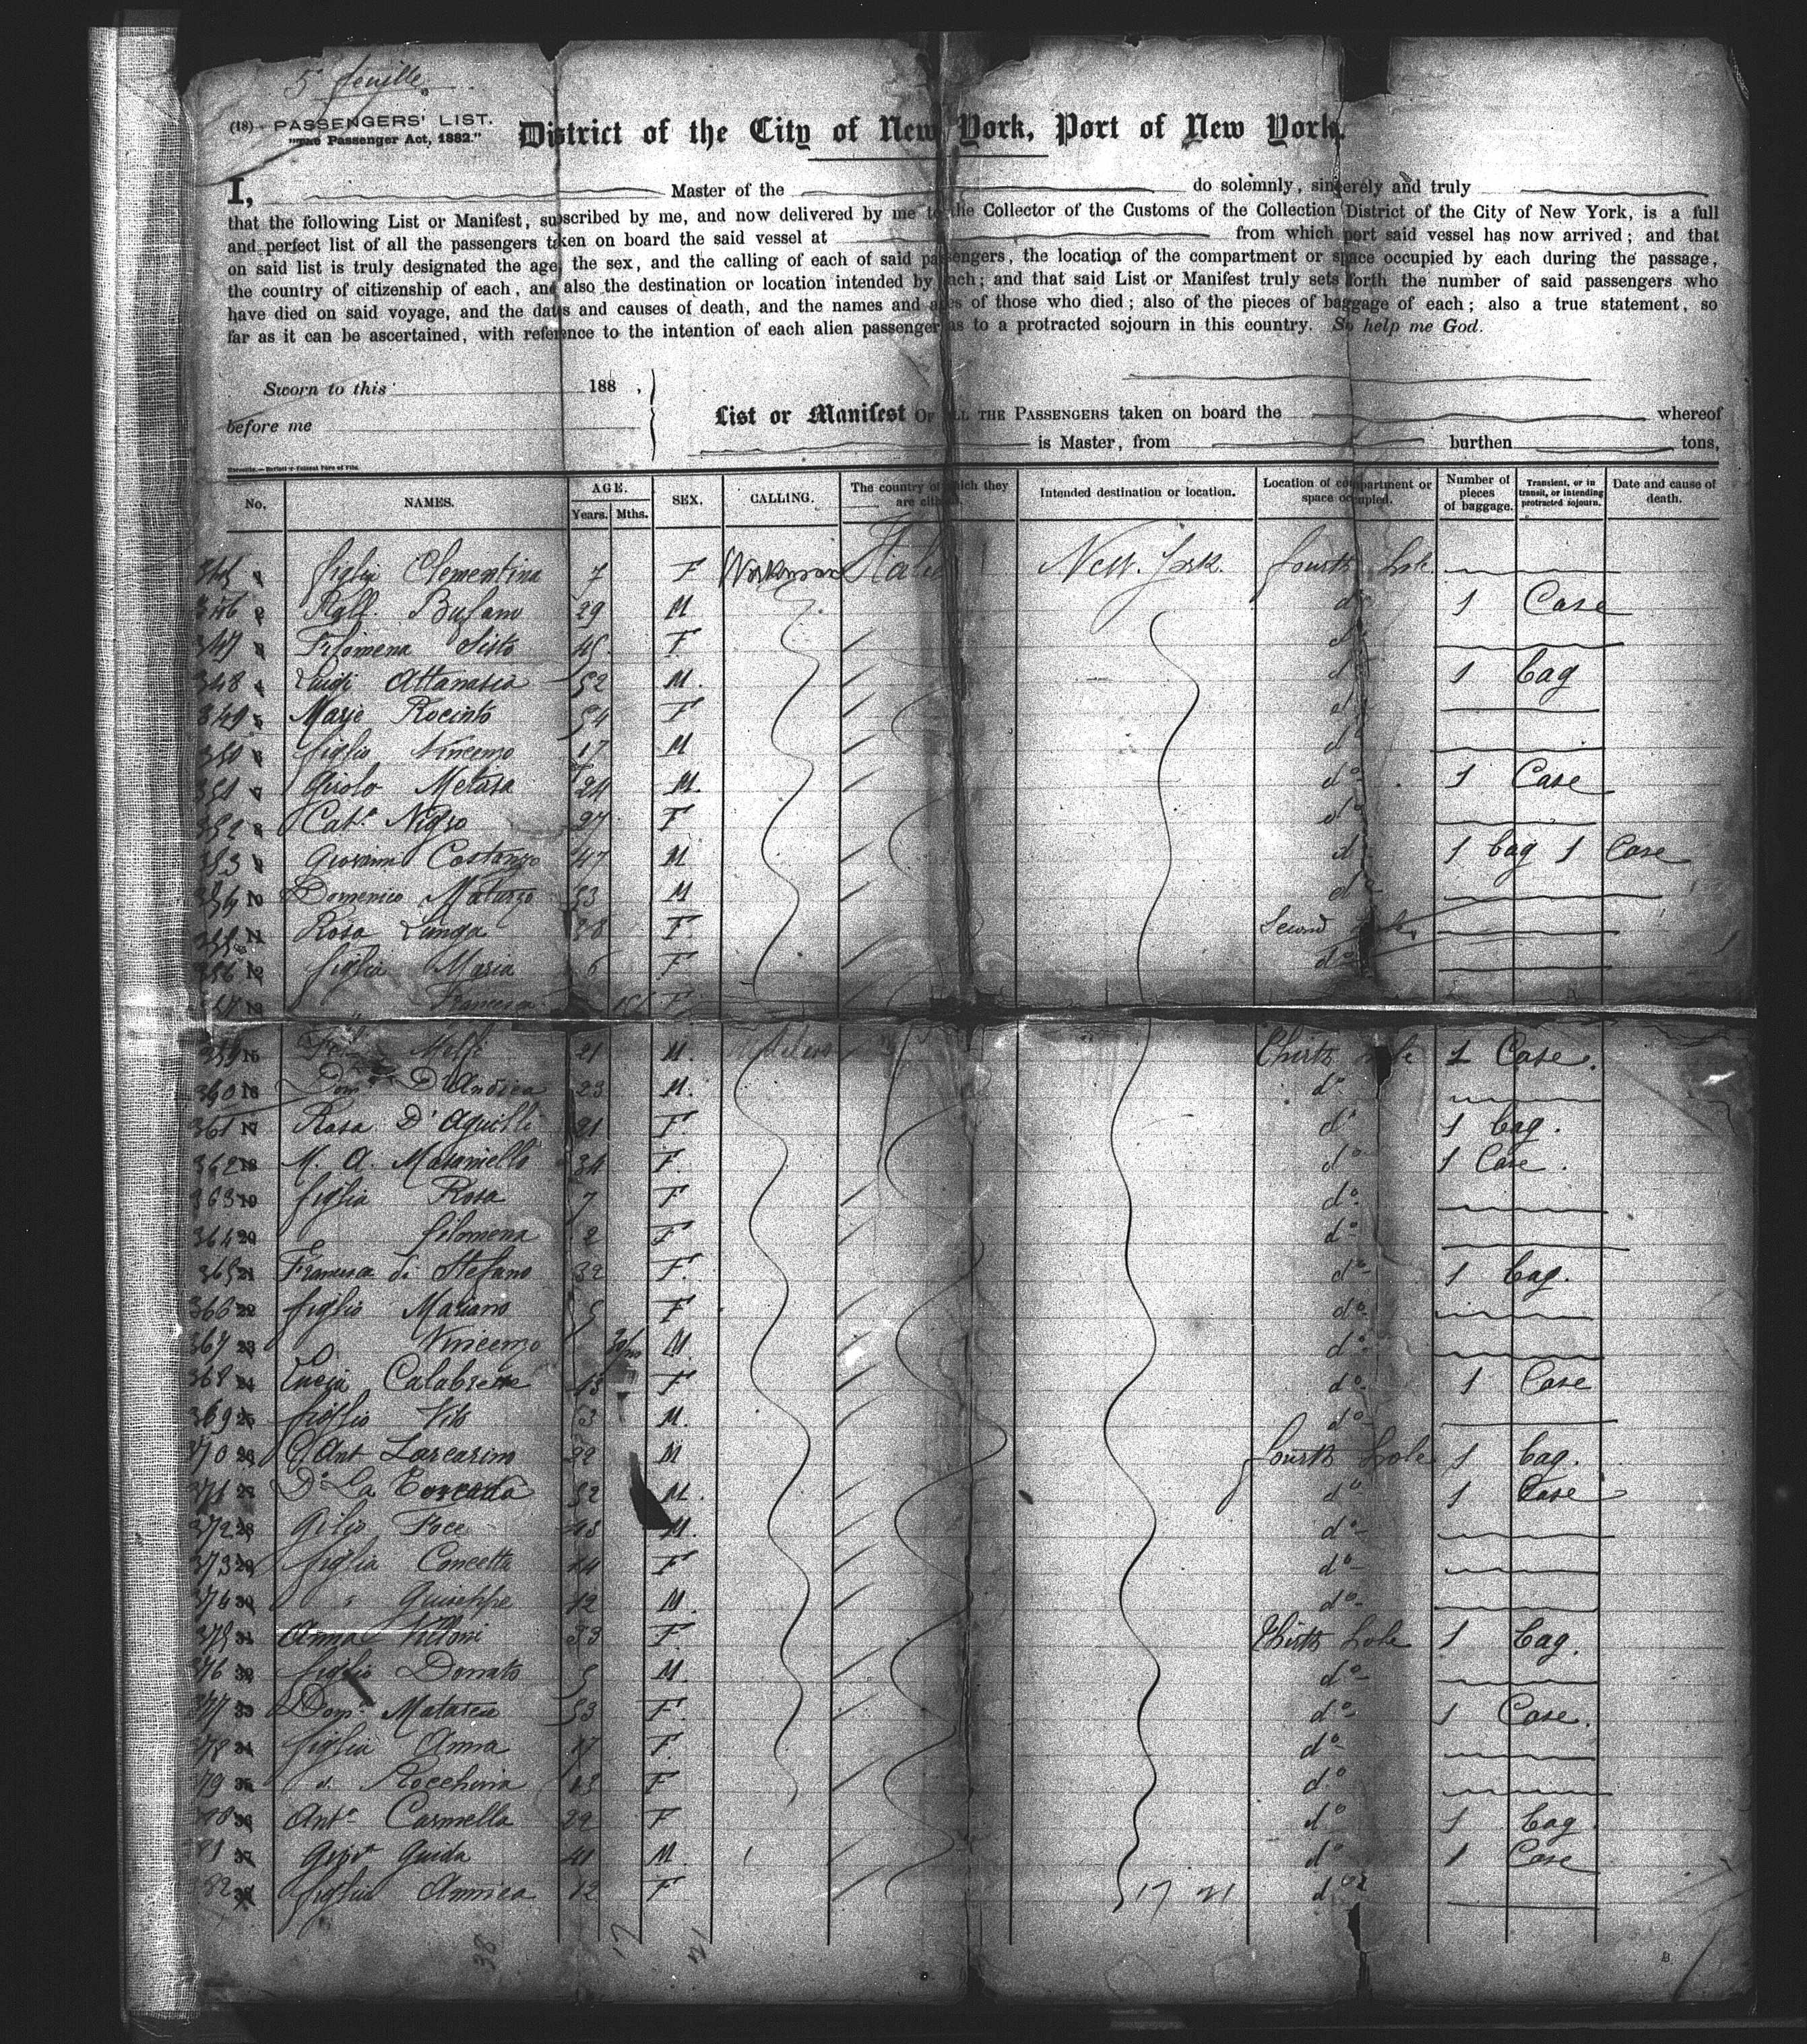 5e feuille.
(18) PASSENGERS' LIST.
"The Passenger Act, 1882."
District of the City of New York, Port of New York.
I, Master of the do solemnly, sincerely and truly
that the following List or Manifest, subscribed by me, and now delivered by me to the Collector of the Customs of the Collection District of the City of New York, is a full
and perfect list of all the passengers taken on board the said vessel at from which port said vessel has now arrived; and that
on said list is truly designated the age, the sex, and the calling of each of said passengers, the location of the compartment or space occupied by each during the passage,
the country of citizenship of each, and also the destination or location intended by each; and that said List or Manifest truly sets forth the number of said passengers who
have died on said voyage, and the dates and causes of death, and the names and ages of those who died; also of the pieces of baggage of each; also a true statement, so
far as it can be ascertained, with reference to the intention of each alien passenger as to a protracted sojourn in this country. So help me God.
Sworn to this 188 ,
before me
List or Manifest OF ALL THE PASSENGERS taken on board the whereof
is Master, from burthen tons,
No. NAMES. AGE. Years. Mths. SEX. CALLING. The country of which they are Intended destination or location. Location of compartment or space occupied. Number of pieces of baggage. Transient, or in transit, or intending protracted sojourn. Date and cause of death.
345 figlia Clementina 7 F Workman Italy New. York. fourth hole
346 Raff. Bufano 29 M do 1 Case
347 Filomena Sisto F do
348 Luigi Attanasia 52 M. do 1 bag
349 Marie Rocinto 54 F do
350 figlio Vincenzo 17 M do
351 Metasa 24 M. do 1 Case
352 Cata Nigro 27 F do
353 9 Giovanni Costanzo 47 M do 1 bag 1 Case
354 10 Domenico Maturzo 53 M do
355 11 Rosa Lunga 28 F. Second
356 12 figlia Maria 6 F do
13 Francesca F
359 15 Melfi 21 M. 1 Case.
360 16 Domo D'Andrea 23 M. do
361 17 Rosa D'Aquilli 21 F. do 1 bag.
362 18 M. A. Masaniello 34 F. do 1 Case.
363 19 figlia Rosa 7 F do
364 20 filomena 2 F do
365 21 Francesca di Stefano 32 F. do 1 bag.
366 22 figlio Mariano 5 F do
367 23 Vincenzo M. do
368 24 Lucia Calabrese 43 F do 1 Case
369 25 figlio Vito 3 M. do
370 26 Ant Lascarino 22 M fourth hole 1 bag.
371 27 La 52 M. do 1 Case
372 28 Foce 43 M. do
373 29 figlia Concetta 14 F do
374 30 " Guiseppe 12 M. do
375 31 Anna Villoni 33 F. hole 1 bag.
376 32 figlio Donato 5 M. do
377 33 Doma 53 F. do 1 Case.
378 34 figlia Anna 17 F. do
79 35 d. Rocchina 13 F do
36 Anta Carmella 22 F do 1 bag
81 37 Guida 41 M. do 1 Case
82 38 figlia 12 F do
17 21
38 17 21